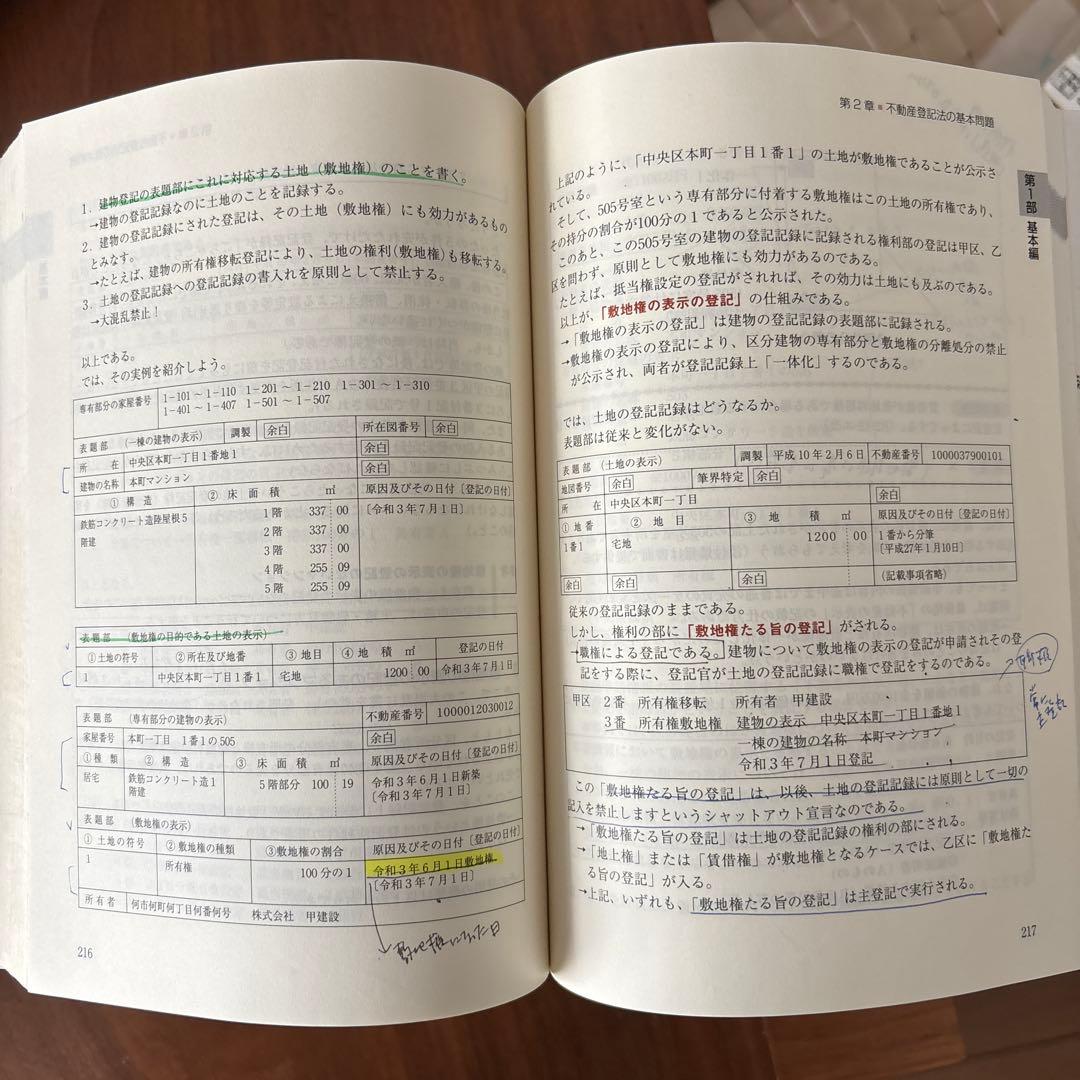 1．建物登記の表題部にこれに対応する土地（敷地権）のことを書く。
→建物の登記記録なのに土地のことを記録する。
2．建物の登記記録にされた登記は、その土地（敷地権）にも効力があるもの
とみなす。
→たとえば、建物の所有権移転登記により、土地の権利（敷地権）も移転する。
3．土地の登記記録への登記記録の書入れを原則として禁止する。
→大混乱禁止！
以上である。
では、その実例を紹介しよう。
専有部分の家屋番号 1－101～1－110 1－201～1－210 1－301～1－310
1－401～1－407 1－501～1－507
表題部 （一棟の建物の表示） 調製 余白 所在図番号 余白
所在 中央区本町一丁目1番地1 余白
建物の名称 本町マンション 余白
①構造 ②床面積 ㎡ 原因及びその日付〔登記の日付〕
鉄筋コンクリート造陸屋根5 1階 337 00 〔令和3年7月1日〕
階建 2階 337 00
3階 337 00
4階 255 09
5階 255 09
表題部 （敷地権の目的である土地の表示）
①土地の符号 ②所在及び地番 ③地目 ④地積 ㎡ 登記の日付
1 中央区本町一丁目1番1 宅地 1200 00 令和3年7月1日
表題部 （専有部分の建物の表示） 不動産番号 1000012030012
家屋番号 本町一丁目 1番1の505 余白
①種類 ②構造 ③床面積 ㎡ 原因及びその日付〔登記の日付〕
居宅 鉄筋コンクリート造1 5階部分 100 19 令和3年6月1日新築
階建 〔令和3年7月1日〕
表題部 （敷地権の表示）
①土地の符号 ②敷地権の種類 ③敷地権の割合 原因及びその日付〔登記の日付〕
1 所有権 100分の1 令和3年6月1日敷地権
〔令和3年7月1日〕
所有者 何市何町何丁目何番何号 株式会社 甲建設
敷地権になった日
216
第2章■不動産登記法の基本問題
第1部 基本編
上記のように、「中央区本町一丁目1番1」の土地が敷地権であることが公示さ
れている。
そして、505号室という専有部分に付着する敷地権はこの土地の所有権であり、
その持分の割合が100分の1であると公示された。
このあと、この505号室の建物の登記記録に記録される権利部の登記は甲区、乙
区を問わず、原則として敷地権にも効力があるのである。
たとえば、抵当権設定の登記がされれば、その効力は土地にも及ぶのである。
以上が、「敷地権の表示の登記」の仕組みである。
→「敷地権の表示の登記」は建物の登記記録の表題部に記録される。
→敷地権の表示の登記により、区分建物の専有部分と敷地権の分離処分の禁止
が公示され、両者が登記記録上「一体化」するのである。
では、土地の登記記録はどうなるか。
表題部は従来と変化がない。
表題部 （土地の表示） 調製 平成10年2月6日 不動産番号 1000037900101
地図番号 余白 筆界特定 余白
所在 中央区本町一丁目 余白
①地番 ②地目 ③地積 ㎡ 原因及びその日付〔登記の日付〕
1番1 宅地 1200 00 1番から分筆
〔平成27年1月10日〕
余白 余白 余白 （記載事項省略）
従来の登記記録のままである。
しかし、権利の部に「敷地権たる旨の登記」がされる。
→職権による登記である。建物について敷地権の表示の登記が申請されその登
記をする際に、登記官が土地の登記記録に職権で登記をするのである。
甲区 2番 所有権移転 所有者 甲建設
3番 所有権敷地権 建物の表示 中央区本町一丁目1番地1
一棟の建物の名称 本町マンション
令和3年7月1日登記
この「敷地権たる旨の登記」は、以後、土地の登記記録には原則として一切の
記入を禁止しますというシャットアウト宣言なのである。
→「敷地権たる旨の登記」は土地の登記記録の権利の部にされる。
→「地上権」または「賃借権」が敷地権となるケースでは、乙区に「敷地権た
る旨の登記」が入る。
→上記、いずれも、「敷地権たる旨の登記」は主登記で実行される。
217